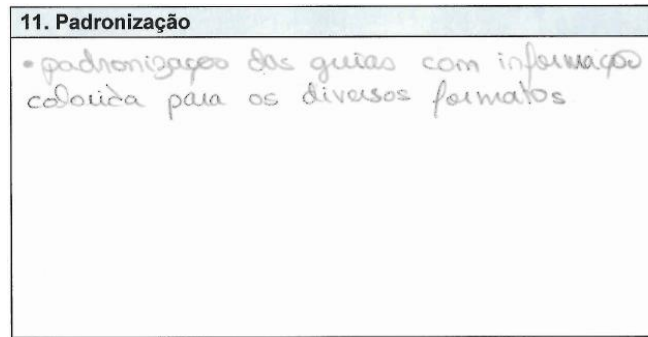 11. Padronização
• padronização das guias com informação
colorida para os diversos formatos